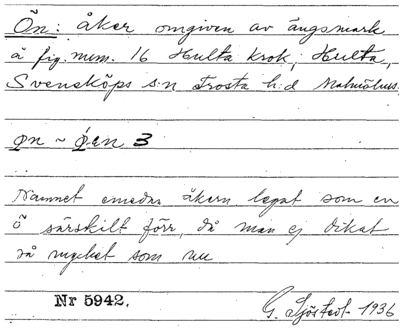 Ön: åker omgiven av ängsmark
å fig. num. 16 Hulta krok, Hulta,
Svensköps s:n Frosta h:d Malmöhus.
øn ~ ǿen 3
Namnet emedan åkern legat som en
ö särskilt förr, då man ej dikat
så mycket som nu
Nr 5942.
G. Sjöstedt. 1936